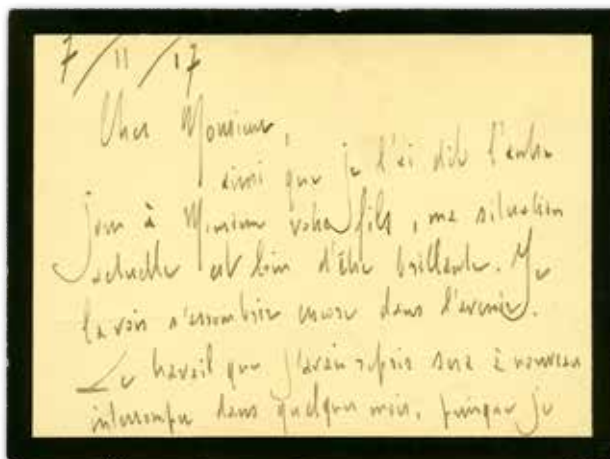 7/11/17
Cher Monsieur,
ainsi que je l'ai dit l'autre
jour à Monsieur votre fils, ma situation
actuelle est loin d'être brillante. Je
la vois s'assombrir encore dans l'avenir.
Le travail que j'avais repris sera à nouveau
interrompu dans quelques mois, puisque je